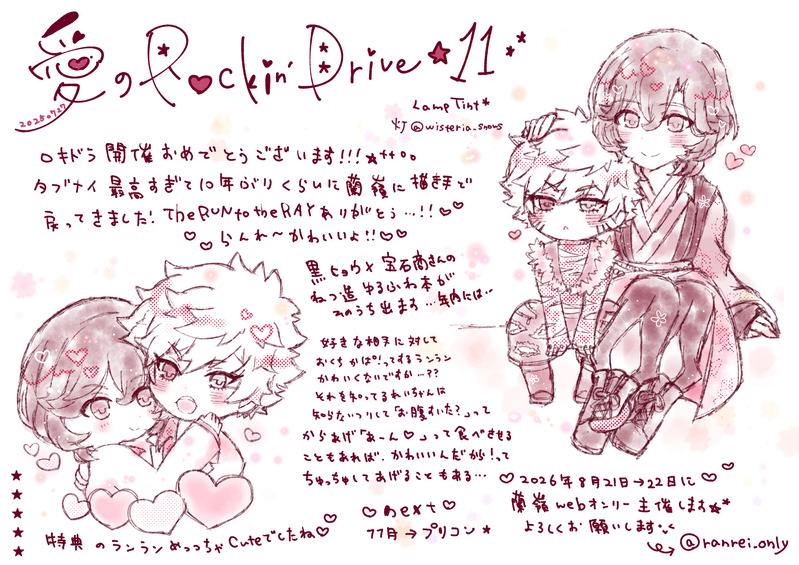 愛のRockin' Drive★11
2025.7.27
Lamp Tint*
灯@wisteria_snows
ロキドラ開催おめでとうございます!!!
タブナイ最高すぎて10年ぶりくらいに蘭嶺に描きまで
戻ってきました! The RUN to the RAYありがとう…!!♡♡
♡♡らんれ〜かわいいよ!!♡♡
黒ヒョウ×宝石商さんの
ねつ造ゆるふわ本が
そのうち出ます…年内には…
好きな相手に対して
おくちかぱ!ってするランラン
かわいくないですか…??
それを知ってるれいちゃんは
知らないつりして「お腹すいた?」って
からあげ「あーん♡」って食べさせる
こともあれば、かわいいんだが!って
ちゅっちゅしてあげることもある…
♡2026年8月21日→22日に♡♡
蘭嶺webオンリー主催します
よろしくお願いします
@ranrei_only
♡next♡
11月→プリコン*
特典のランランめっっちゃCuteでしたね♡♡